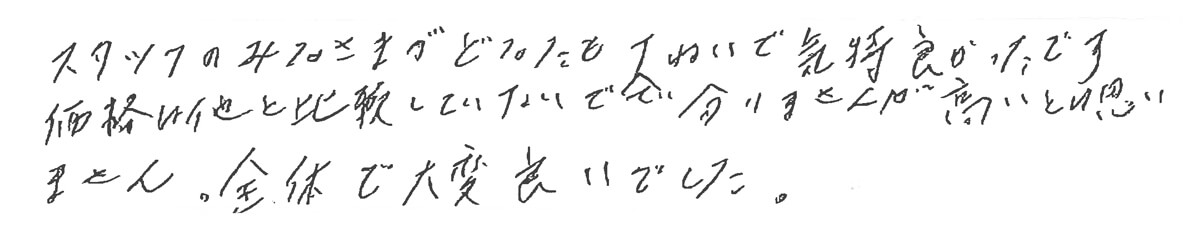 スタッフのみなさまがどなたもていねいで気持良かったです
価格は他と比較していないので分りませんが高いとは思い
ません。全体で大変良いでした。